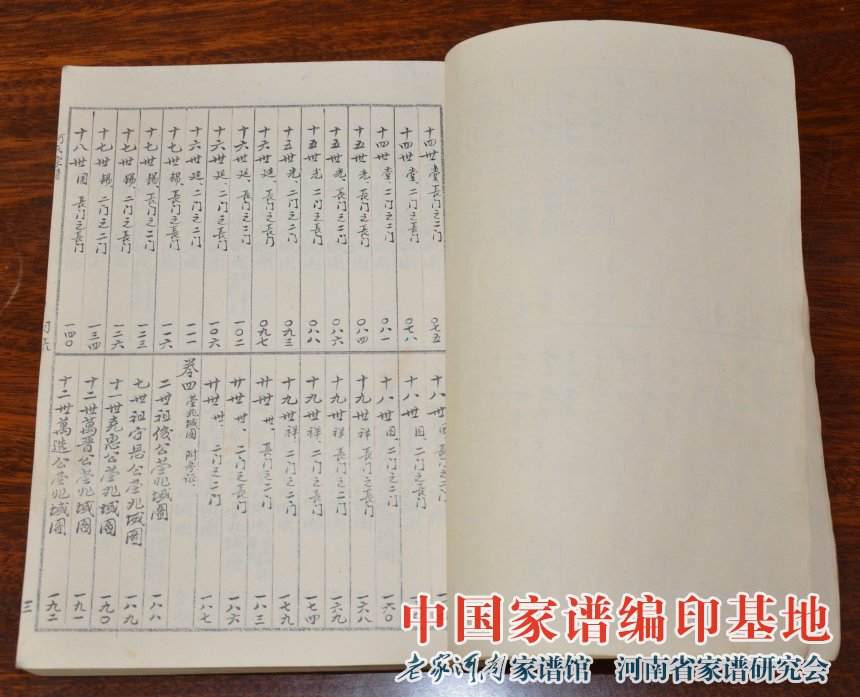 十四世堂、長门之二门 〇七五
十四世堂、二门之長门 〇七八
十四世堂、二门之二门 〇八一
十五世光、長门之長门 〇八四
十五世光、長门之二门 〇八六
十五世光、二门之長门 〇八八
十五世光、二门之二门 〇九三
十六世廷、長门之長门 〇九七
十六世廷、長门之二门 一〇二
十六世廷、二门之長门 一〇六
十六世廷、二门之二门 一一一
十七世锡、長门之長门 一一六
十七世锡、長门之二门 一二三
十七世锡、二门之長门 一二六
十七世锡、二门之二门 一三四
十八世国、長门之長门 一四〇
十八世国、長门之二门
十八世国、二门之長门
十八世国、二门之二门 一六〇
十九世祥、長门之長门 一六八
十九世祥、長门之二门 一六九
十九世祥、二门之長门 一七四
十九世祥、二门之二门 一七九
廿世世、長门之二门 一八三
廿世世、二门之長门 一八六
廿世世、二门之二门 一八七
卷四 茔兆域图 附考证
二世祖俊公茔兆域图 一八八
七世祖守恩公茔兆域图 一八九
十一世堯惠公茔兆域图 一九〇
十二世萬晋公茔兆域图 一九一
十二世萬选公茔兆域图 一九二
目录
三
中国家谱编印基地
老家河南家谱馆 河南省家谱研究会